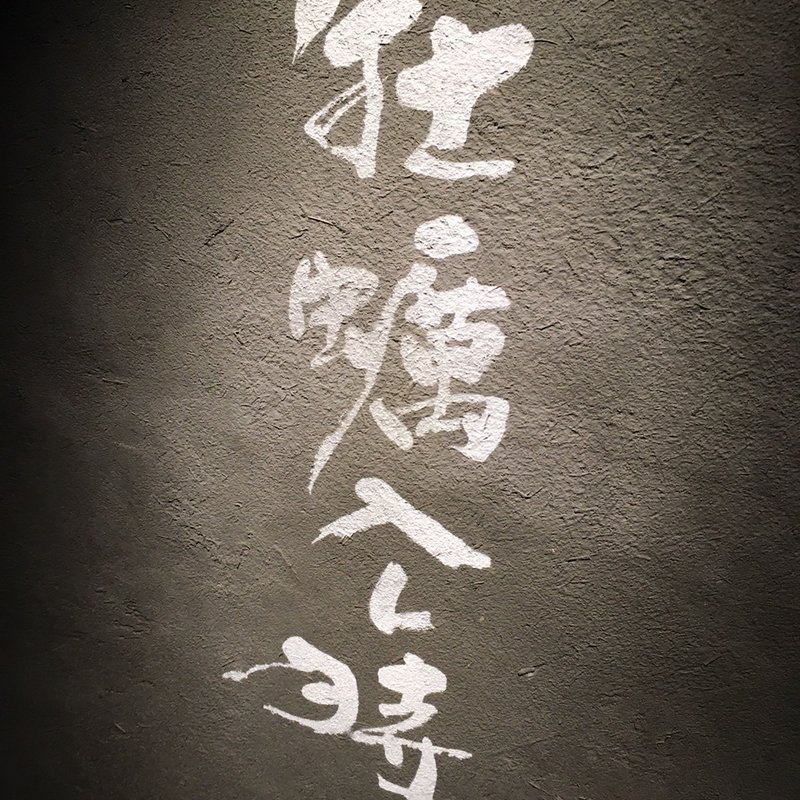 牡蠣入レ時